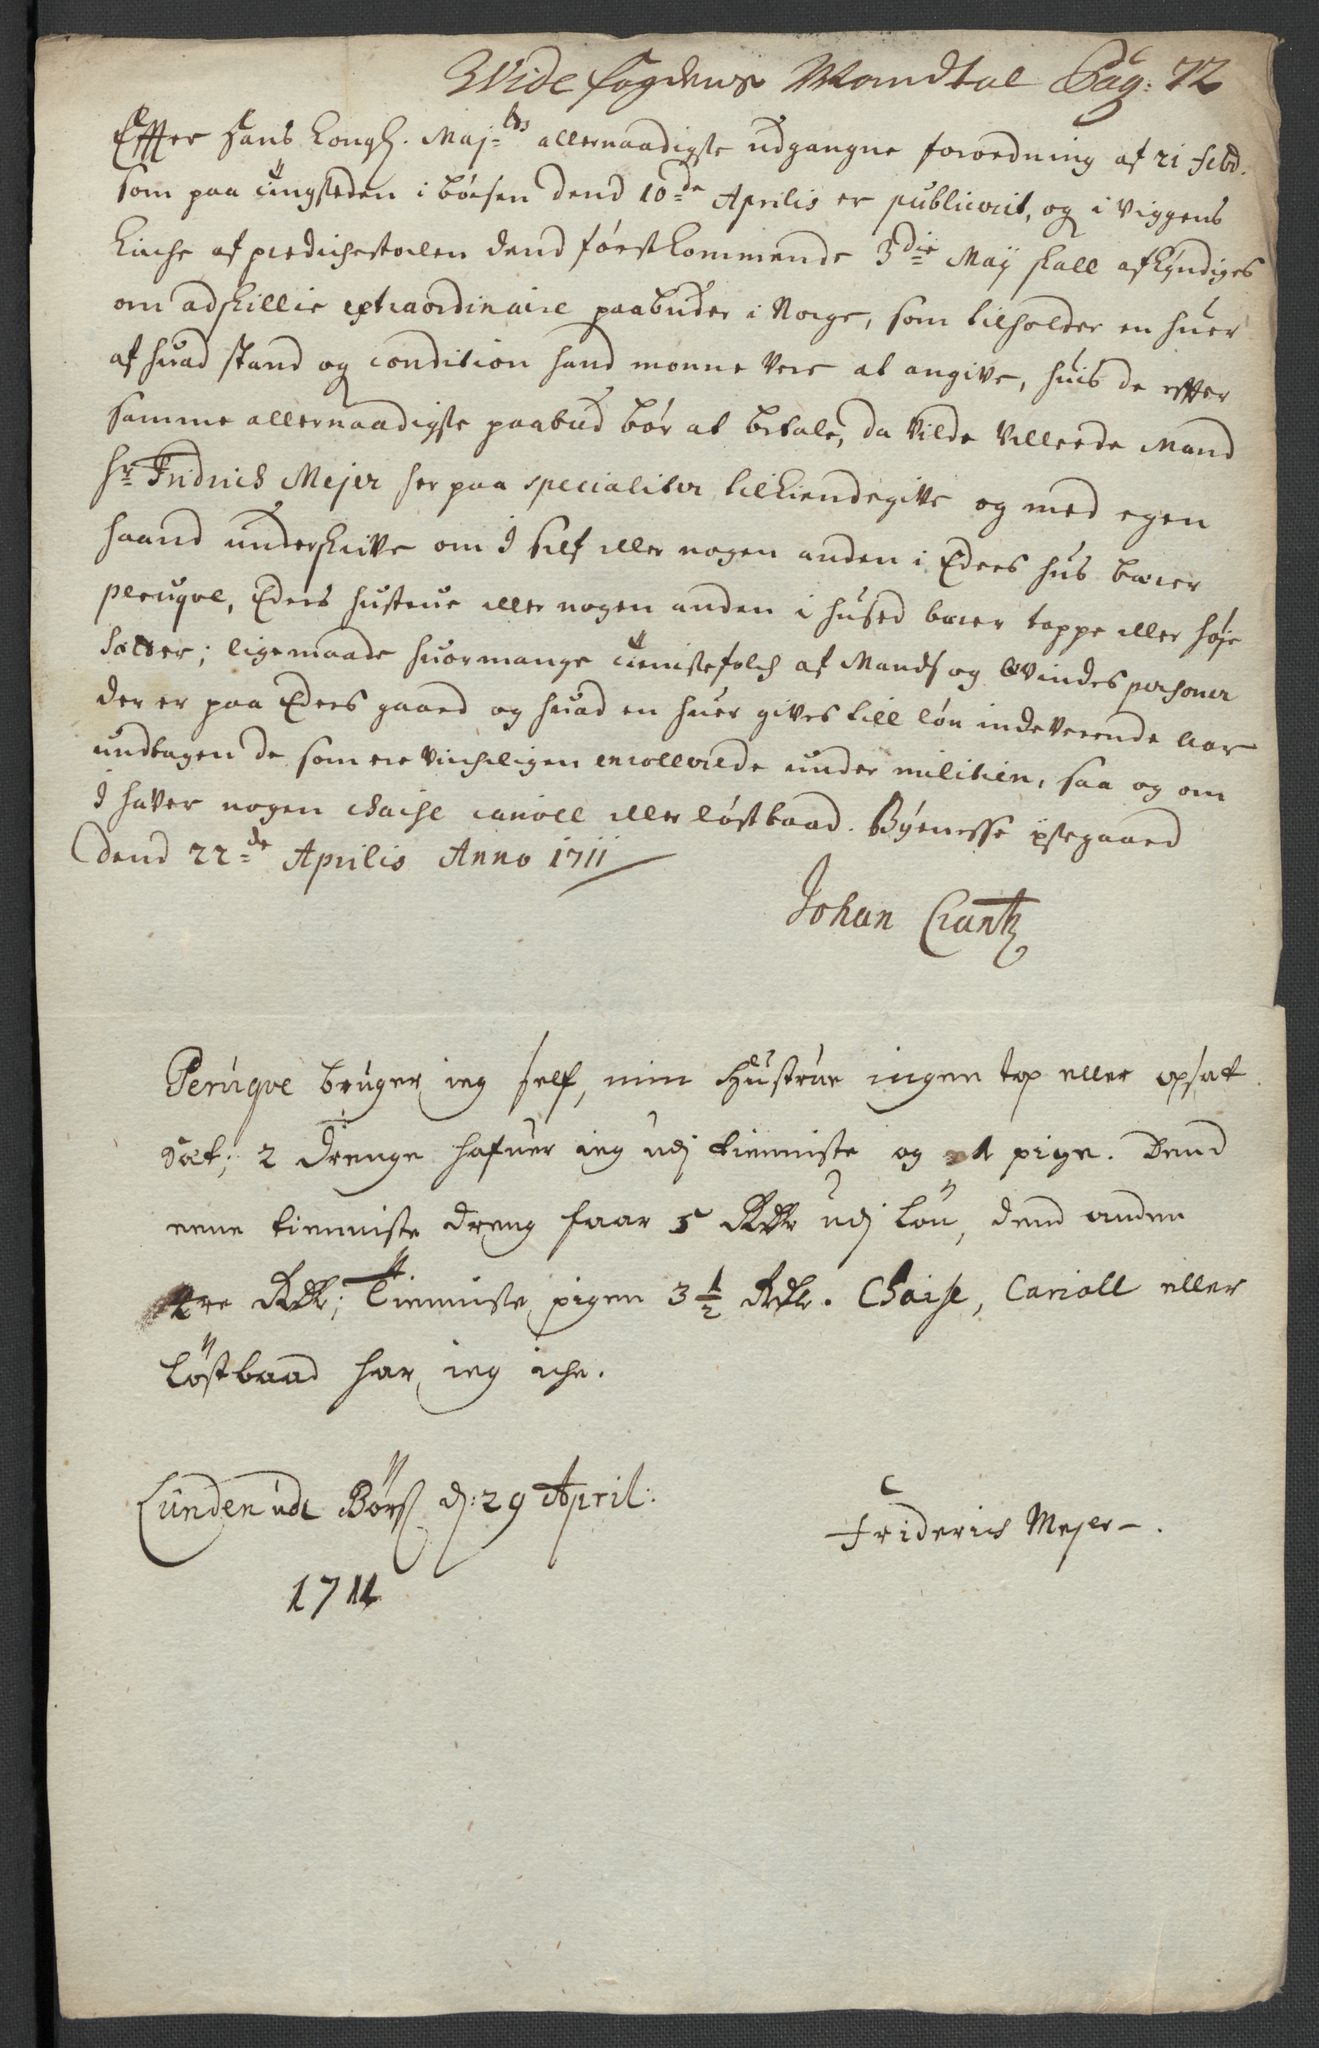 Vide fogdens Mandtal Pag: 72
Effter Hans Kongl. Maj:ts allernaadigste udgangne forordning af 21 febr.
som paa tingsteden i Børsen dend 10de Aprilis er publicerit, og i Viggens
Kirche af predichestoelen dend førstkommende 3die Maÿ skall afkyndiges
om adskillie extraordinaire paabuder i Norge, som tilholder en huer
af huad stand og condition hand monne vere at angive, huis de effter
samme allernaadigste paabud bør at betale, da vilde Velærde Mand
Hr Fridrich Mejer her paa specialiter tilkiendegive og med egen
haand underskrive om I self eller nogen anden i Eders hus bærer
peruqve, Eders hustrue eller nogen anden i hused bærer toppe eller høje
sætter; ligemaade huormange tienistefolch af Mands og Qvindes personer
der er paa Eders gaard og huad en huer gives till løn indeverende Aar
undtagen de som ere virchelligen enrollerede under militien, saa og om
I haver nogen Chaise cariole eller løstbaad. Bÿenesse præstegaard
dend 22de Aprilis Anno 1711
Johan Crantz
Peruqve bruger ieg self, min Hustrue ingen top eller opsat
Sæt; 2 drenge hafuer ieg udj tienniste og 1 pige. Dend
eene tienniste dreng faar 5 Rdlr udj Løn, dend anden
Rdlr; Tienniste pigen 3 1/2 Rdlr. Chaise, Carioll eller
Løstbaad har ieg iche.
Lunden udi Børs d: 29 April:
1711
Friderich Mejer